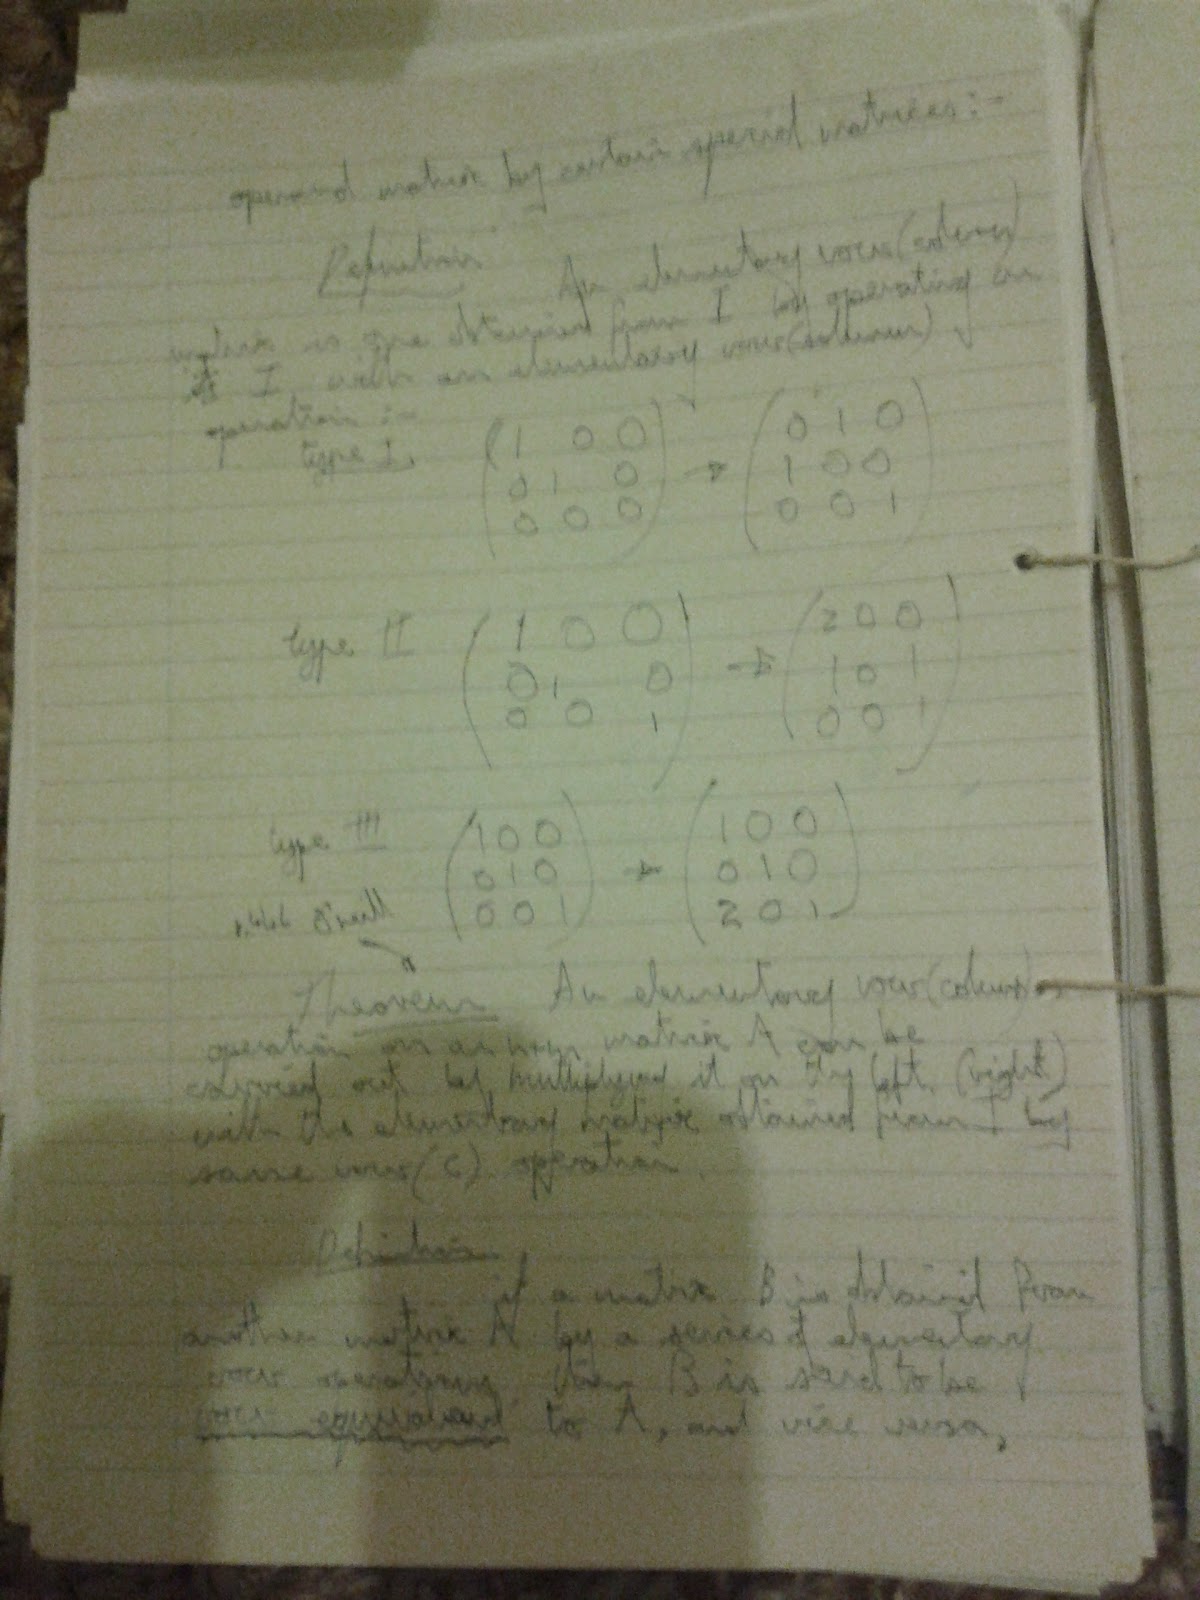 operand matrix by certain special matrices :-
Definition
An elementary row (column)
matrix is one obtained from I by operating on
I with an elementary row (column)
operation :-
type I. ( 1 0 0 → ( 0 1 0
0 1 0 1 0 0
0 0 0 ) 0 0 1 )
type II ( 1 0 0 → ( 2 0 0
0 1 0 1 0 1
0 0 1 ) 0 0 1 )
type III ( 1 0 0 → ( 1 0 0
0 1 0 0 1 0
0 0 1 ) 2 0 1 )
Theorem An elementary row (column)
operation on an matrix A can be
carried out by multiplying it on the left (right)
with the elementary matrix obtained from I by
same row (c) operation.
Definition
if a matrix B is obtained from
another matrix A by a series of elementary
row operations then B is said to be
row equivalent to A, and vice versa,